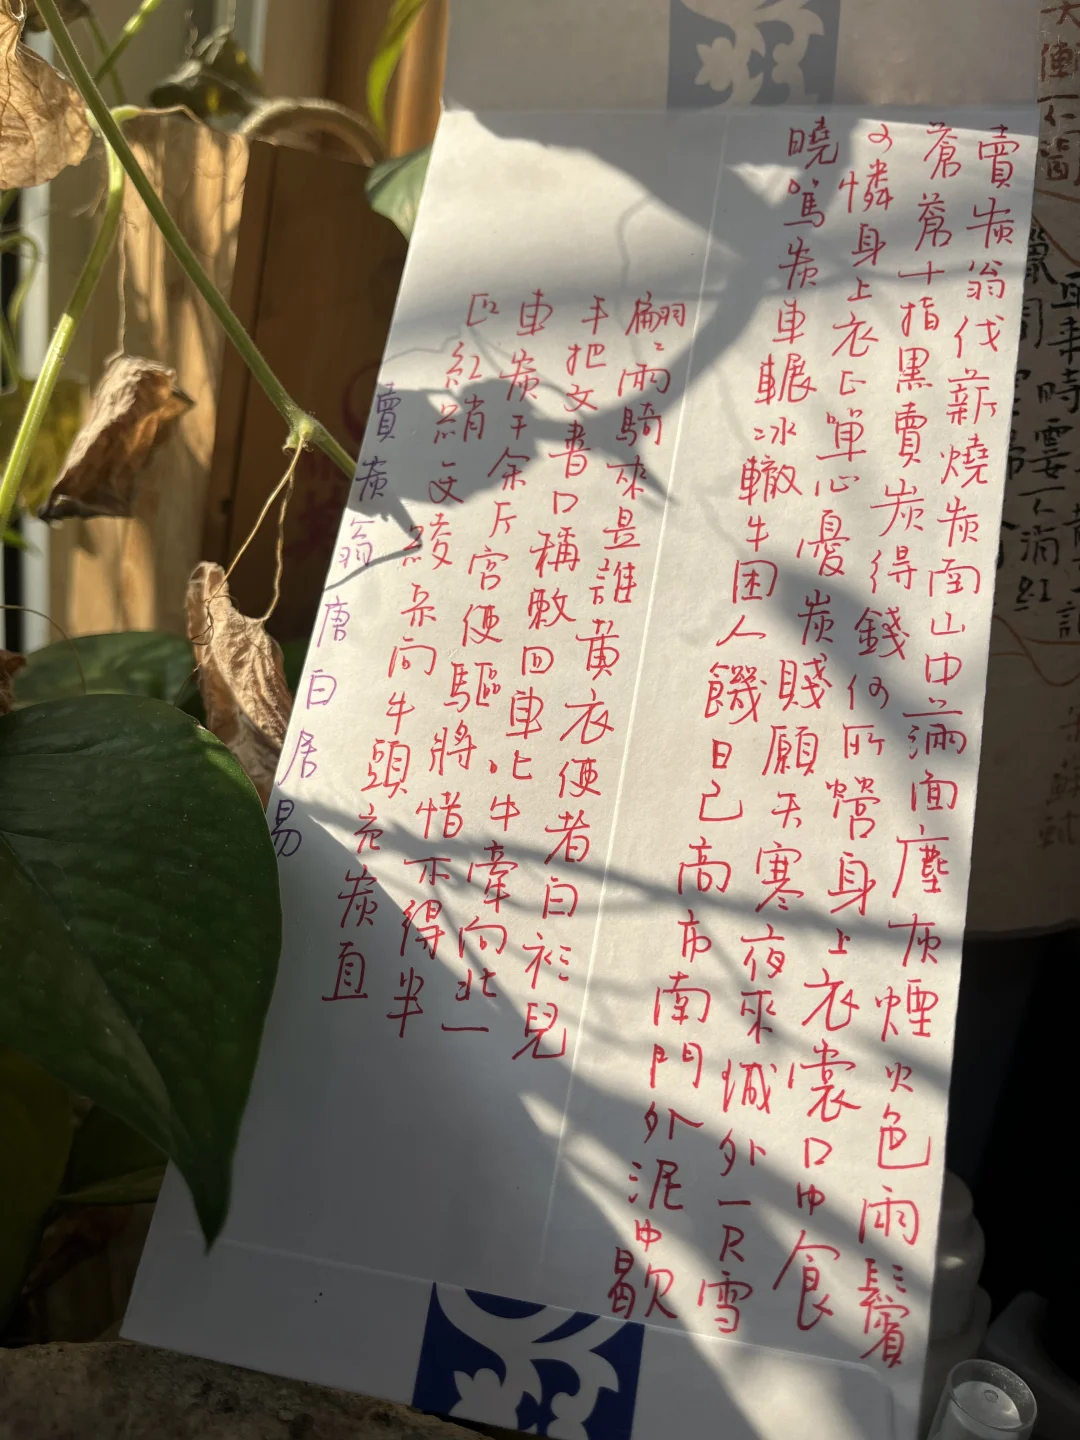 賣炭翁伐薪燒炭南山中滿面塵灰煙火色兩鬢
蒼蒼十指黑賣炭得錢何所營身上衣裳口中食
可憐身上衣正單心憂炭賤願天寒夜來城外一尺雪
曉駕炭車輾冰轍牛困人饑日已高市南門外泥中歇
翩〻兩騎來是誰黃衣使者白衫兒
手把文書口稱敕回車叱牛牽向北一
車炭千余斤宮使驅將惜不得半
匹紅綃丈綾系向牛頭充炭直
賣炭翁 唐 白居易